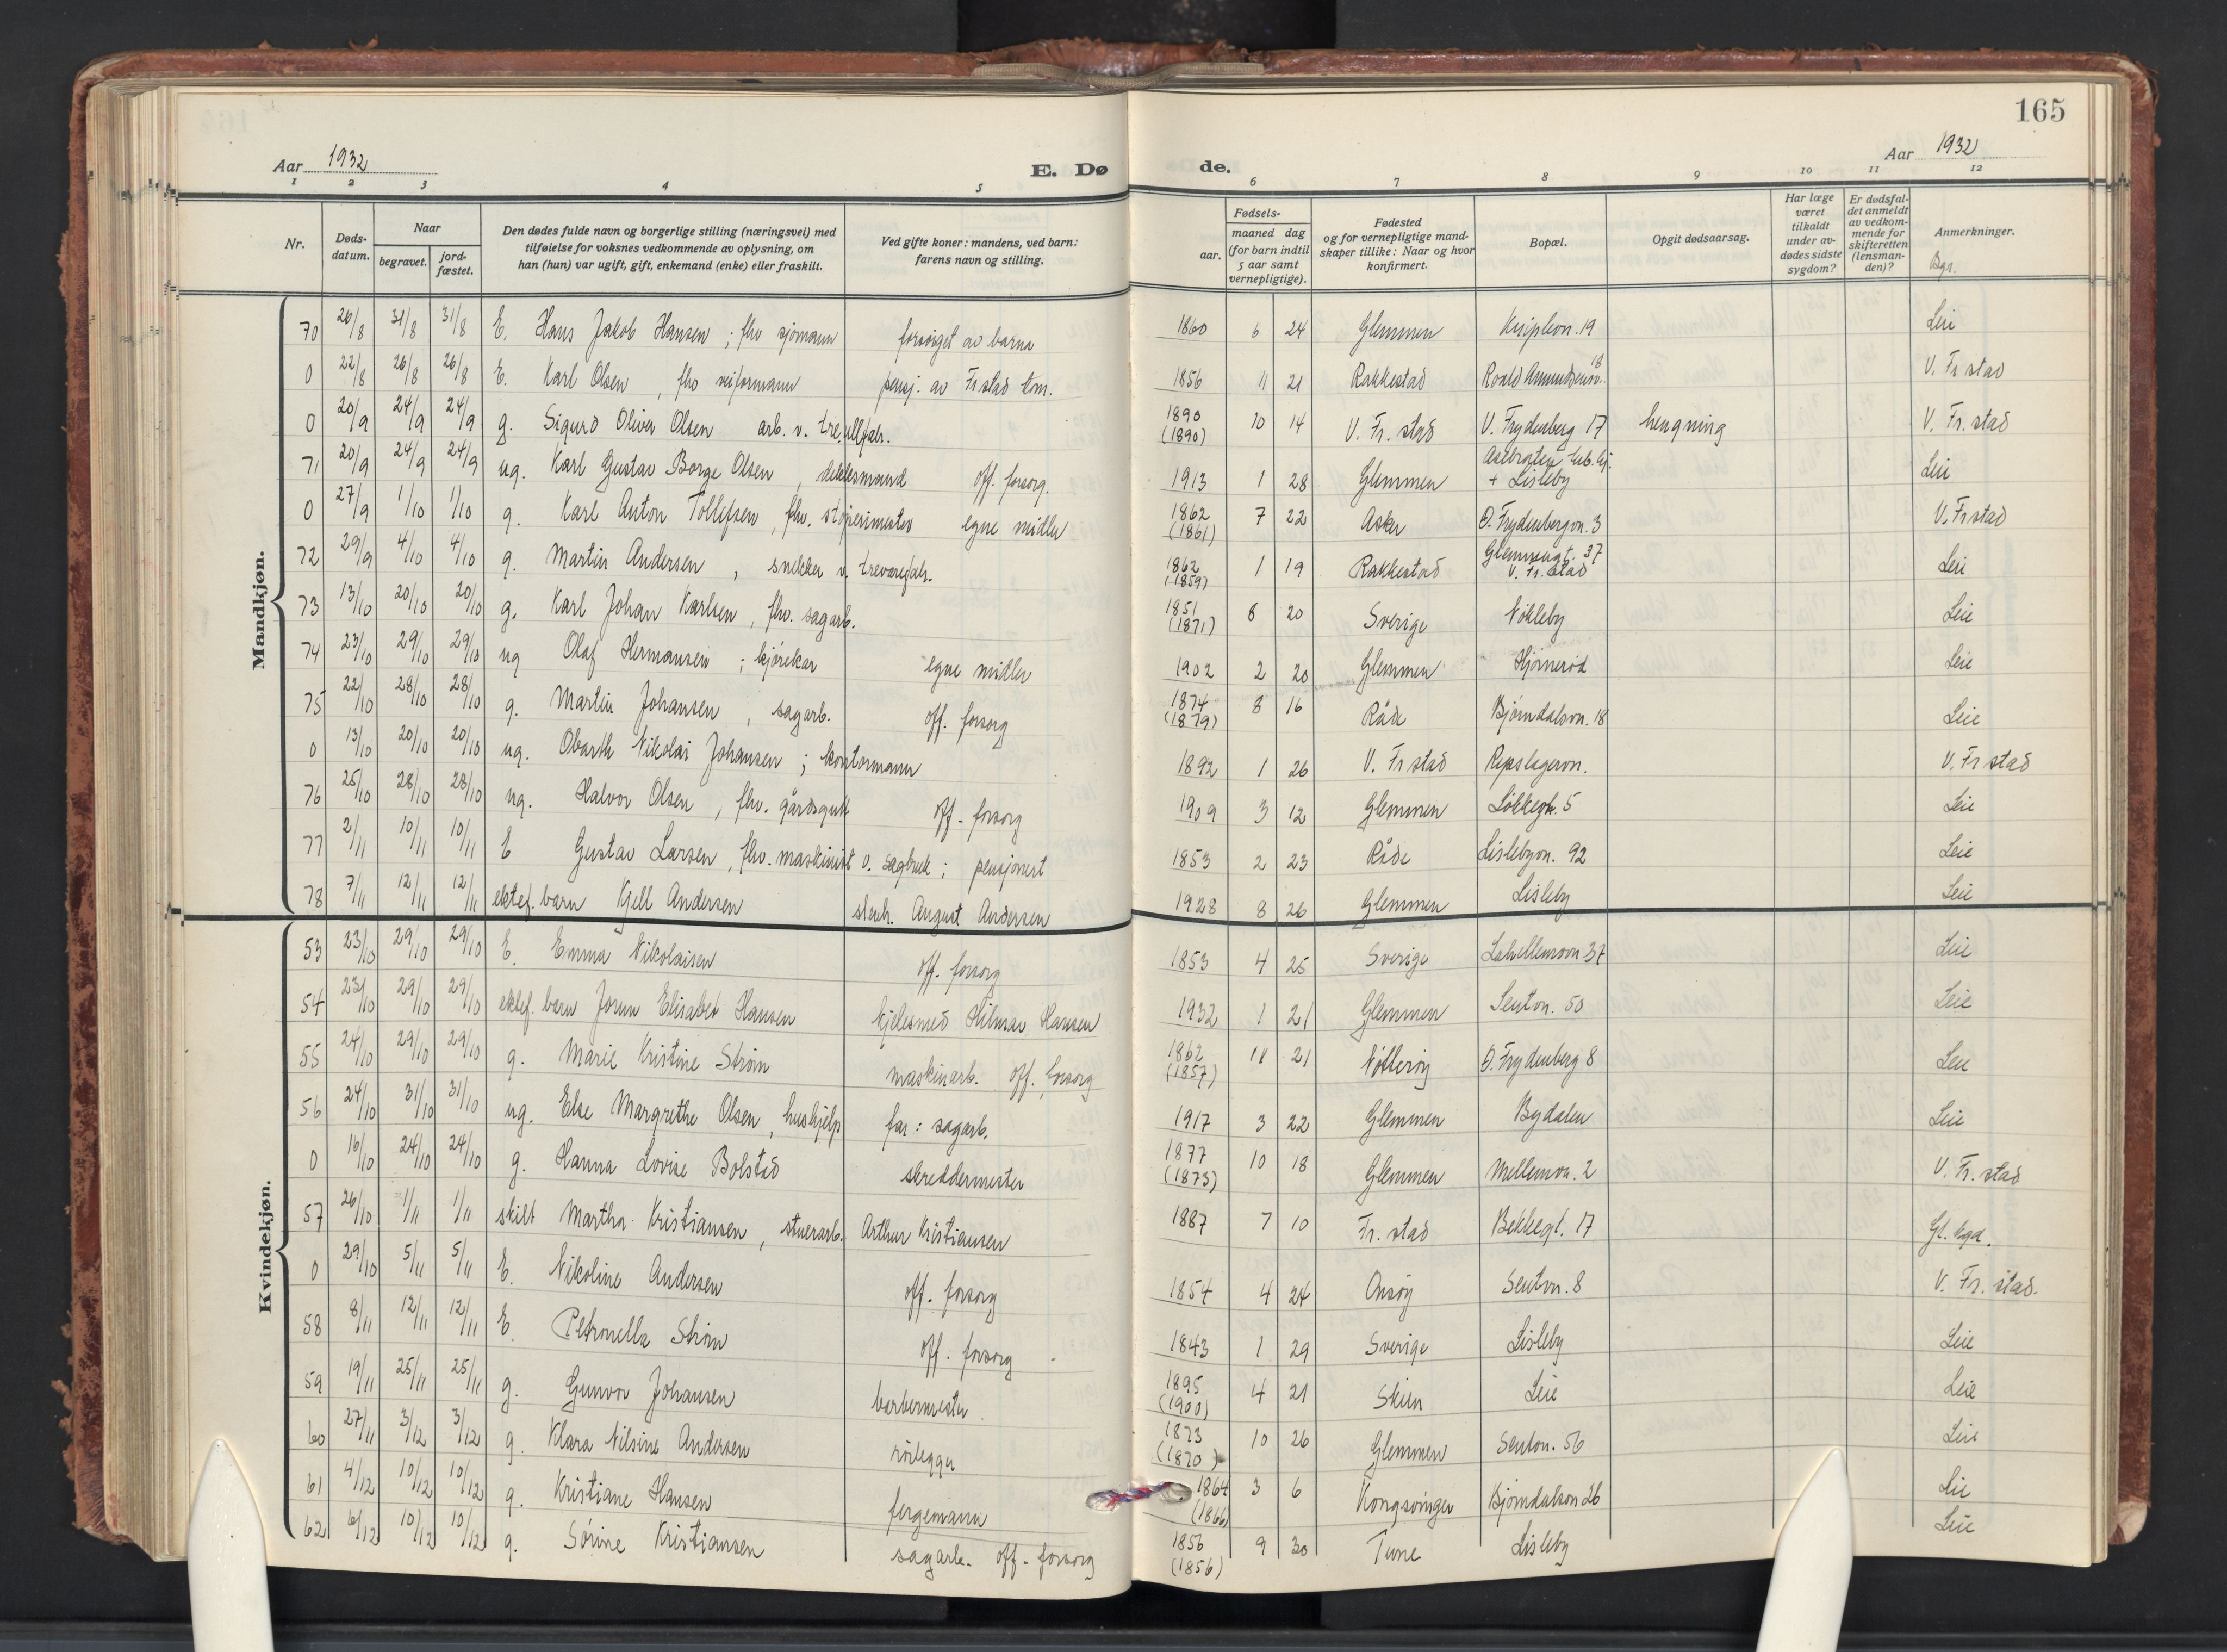 165
Aar 1932
E. Dø de.
Aar 1932
1 2 3 4 5 6 7 8 9 10 11 12
Nr.
Døds-
datum.
Naar
begravet.
jord-
fæstet.
Den dødes fulde navn og borgerlige stilling (næringsvei) med
tilføielse for voksnes vedkommende av oplysning, om
han (hun) var ugift, gift, enkemand (enke) eller fraskilt.
Ved gifte koner: mandens, ved barn:
farens navn og stilling.
Fødsels-
aar.
maaned dag
(for barn indtil
5 aar samt
vernepligtige).
Fødested
og for vernepligtige mand-
skaper tillike: Naar og hvor
konfirmert.
Bopæl.
Opgit dødsaarsag.
Har læge
været
tilkaldt
under av-
dødes sidste
sygdom?
Er dødsfal-
det anmeldt
av vedkom-
mende for
skifteretten
(lensman-
den)?
Anmerkninger.
Bgr.
Mandkjøn.
70 26/8 31/8 31/8 E. Hans Jakob Hansen ; fhv sjømann forsørget av barna 1860 6 24 Glemmen 19 Leie
0 22/8 26/8 26/8 E. Karl Olsen , fhv veiformann pensj. av Fr stad kom. 1856 11 21 Rakkestad Roald Amundsensv. 18 V. Fr stad
0 20/9 24/9 24/9 g. Sigurd Oliver Olsen arb. v. trullfabr. 1890 (1890) 10 14 V. Fr. stad V. Frydenberg 17 hengning V. Fr. stad
71 20/9 24/9 24/9 ug. Karl Gustav Borge Olsen , dekksmand off. forsorg. 1913 1 28 Glemmen + Lisleby Leie
0 27/9 1/10 1/10 g. Karl Anton Tollefsen , fhv. støperimester egne midler 1862 (1861) 7 22 Asker Ø. Frydenbergvn. 3 V. Fr stad
72 29/9 4/10 4/10 g. Martin Andersen , snekker v. trevarefabr. 1862 (1859) 1 19 Rakkestad Glemmengt. 37 V. Fr. stad Leie
73 13/10 20/10 20/10 g. Karl Johan Karlsen , fhv. sagarb. 1851 (1871) 8 20 Sverige Nøkleby Leie
74 23/10 29/10 29/10 ug Olaf Hermansen ; kjørekar egne midler 1902 2 20 Glemmen Hjørnerød Leie
75 22/10 28/10 28/10 g. Martin Johansen , sagarb. off. forsorg 1874 (1879) 8 16 Råde Bjørndalsvn. 18 Leie
0 13/10 20/10 20/10 ug. Obarth Nikolai Johansen ; kontormann 1892 1 26 V. Fr stad Repslagervn. V. Fr stad
76 25/10 28/10 28/10 ug. Halvor Olsen , fhv. gårdsgutt off. forsorg 1909 3 12 Glemmen Løkkegt. 5 Leie
77 2/11 10/11 10/11 E Gustav Larsen , fhv. maskinist v. sagbruk ; pensjonert 1853 2 23 Råde Lislebyvn. 92 Leie
78 7/11 12/11 12/11 ektef. barn Kjell Andersen stenh. August Andersen 1928 8 26 Glemmen Lisleby Leie
Kvindekjøn.
53 23/10 29/10 29/10 E. Emma Nikolaisen off. forsorg 1853 4 25 Sverige Labellemovn 37 Leie
54 23/10 29/10 29/10 ektef. barn Jorun Elisabet Hansen kjelesmed Hilmar Hansen 1932 1 21 Glemmen Leie
55 24/10 29/10 29/10 g. Marie Kristine Strøm maskinarb. off. forsorg 1862 (1857) 11 21 Nøtterøy Ø. Frydenberg 8 Leie
56 24/10 31/10 31/10 ug. Else Margrethe Olsen , hushjelp far : sagarb. 1917 3 22 Glemmen Bydalen Leie
0 16/10 24/10 24/10 g. Hanna Lovise Bolstad skreddermester 1877 (1873) 10 18 Glemmen Mellemvn. 2 V. Fr. stad
57 26/10 1/11 1/11 skilt Martha Kristiansen , stuerarb. Arthur Kristiansen 1887 7 10 Fr. stad Bekkegt. 17 Gl. kgd.
0 29/10 5/11 5/11 E. Nikoline Andersen off. forsorg 1854 4 24 Onsøy 8 V. Fr. stad.
58 8/11 12/11 12/11 E. Petronella Strøm off. forsorg 1843 1 29 Sverige Lisleby Leie
59 19/11 25/11 25/11 g. Gunvor Johansen barbermester 1895 (1900) 4 21 Skien Leie Leie
60 27/11 3/12 3/12 g. Klara Nilsine Andersen rørlegger 1873 (1870) 10 26 Glemmen 56 Leie
61 4/12 10/12 10/12 g. Kristiane Hansen fergemann 1864 (1866) 3 6 Kongsvinger Bjørndalsvn 26 Leie
62 6/12 10/12 10/12 g. Sørine Kristiansen sagarb. off. forsorg 1856 (1856) 9 30 Tune Lisleby Leie